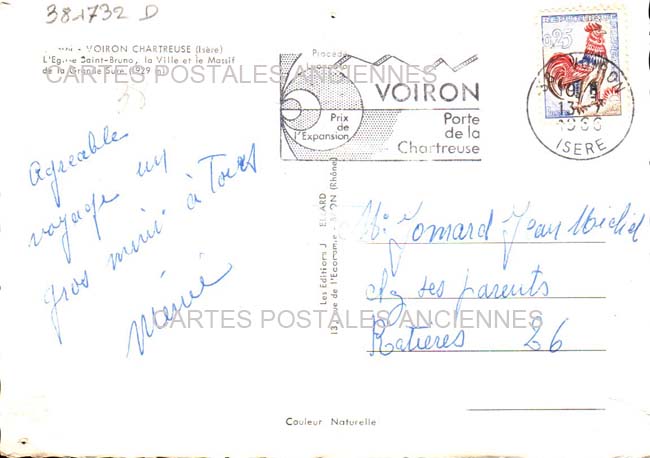 381732 D
- VOIRON CHARTREUSE (Isère)
L'Eglise Saint-Bruno, la Ville et le Massif
de la Grande Sure (1929 m)
CARTES POSTALES ANCIENNES
Procédé
VOIRON
Prix
de
l'Expansion
Porte
de la
Chartreuse
0,25
VOIRON
13
1966
ISERE
Agréable
voyage un
gros mimi à Tous
Mémé
Les Editions J. CELLARD
13, rue de l'Economie - BRON (Rhône)
Mr Jomard Jean Michel
chez ses parents
Ratières 26
CARTES POSTALES ANCIENNES
Couleur Naturelle